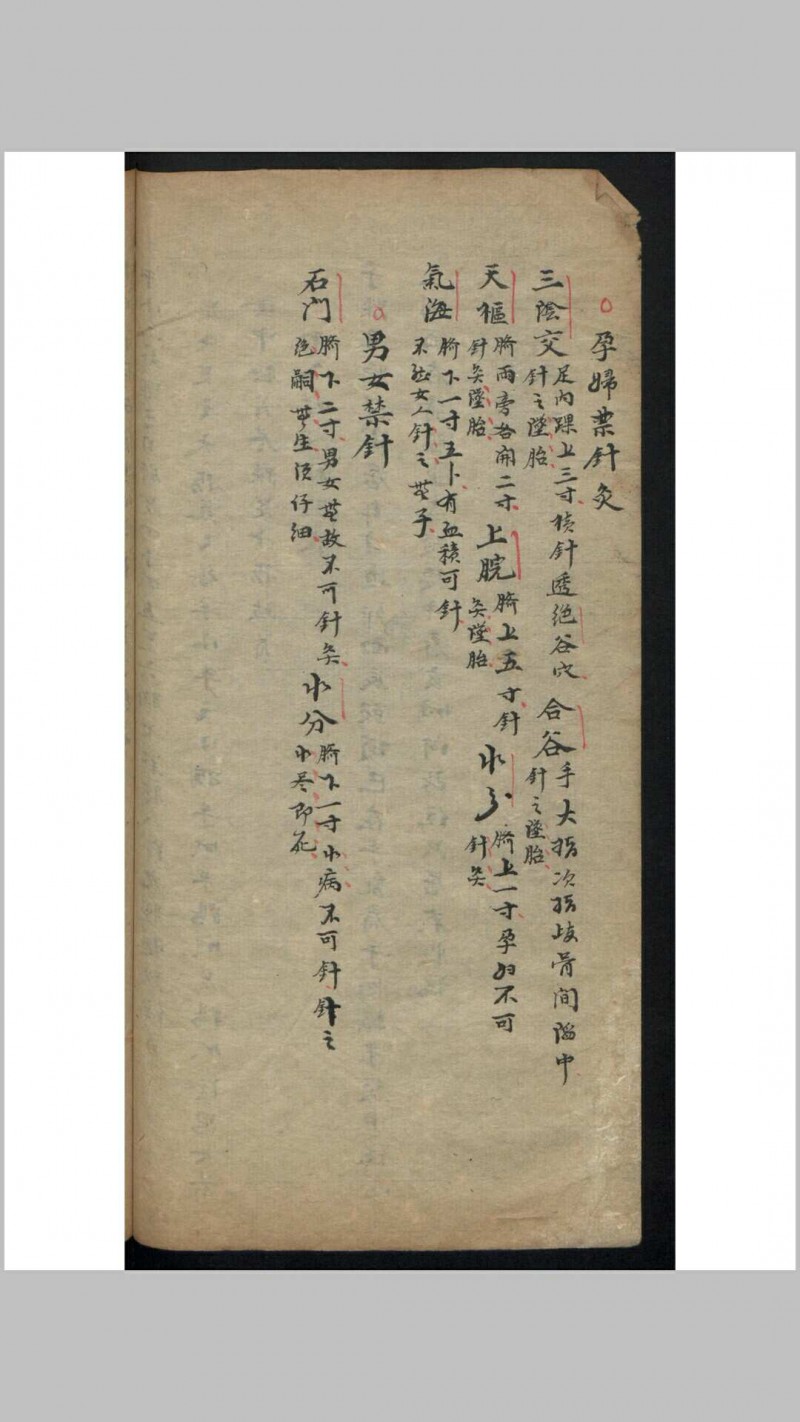 孕婦禁針灸
三陰交
足內踝上三寸橫針透絕谷穴
針之墜胎
合谷
手大指次指歧骨間陷中
針之墜胎
天樞
臍兩旁各開二寸
針灸墜胎
上脘
臍上五寸針
灸墜胎
水分
臍上一寸孕妇不可
針灸
氣海
臍下一寸五卜有血積可針
不然女人針之無子
男女禁針
石门
臍下二寸男女無故不可針灸
绝嗣無生須仔細
水分
臍下一寸水病不可針針之
水尽即死